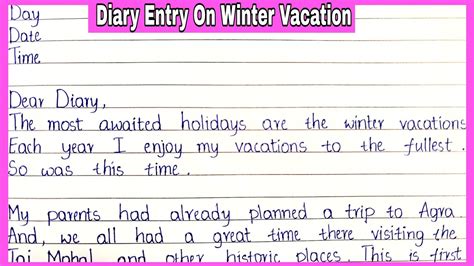 Diary Entry On Winter Vacation
Day
Date
Time
Dear Diary,
The most awaited holidays are the winter vacations
Each year I enjoy my vacations to the fullest.
So was this time.
My parents had already planned a trip to Agra
And, we all had a great time there visiting the
Taj Mahal and other historic places. This is first